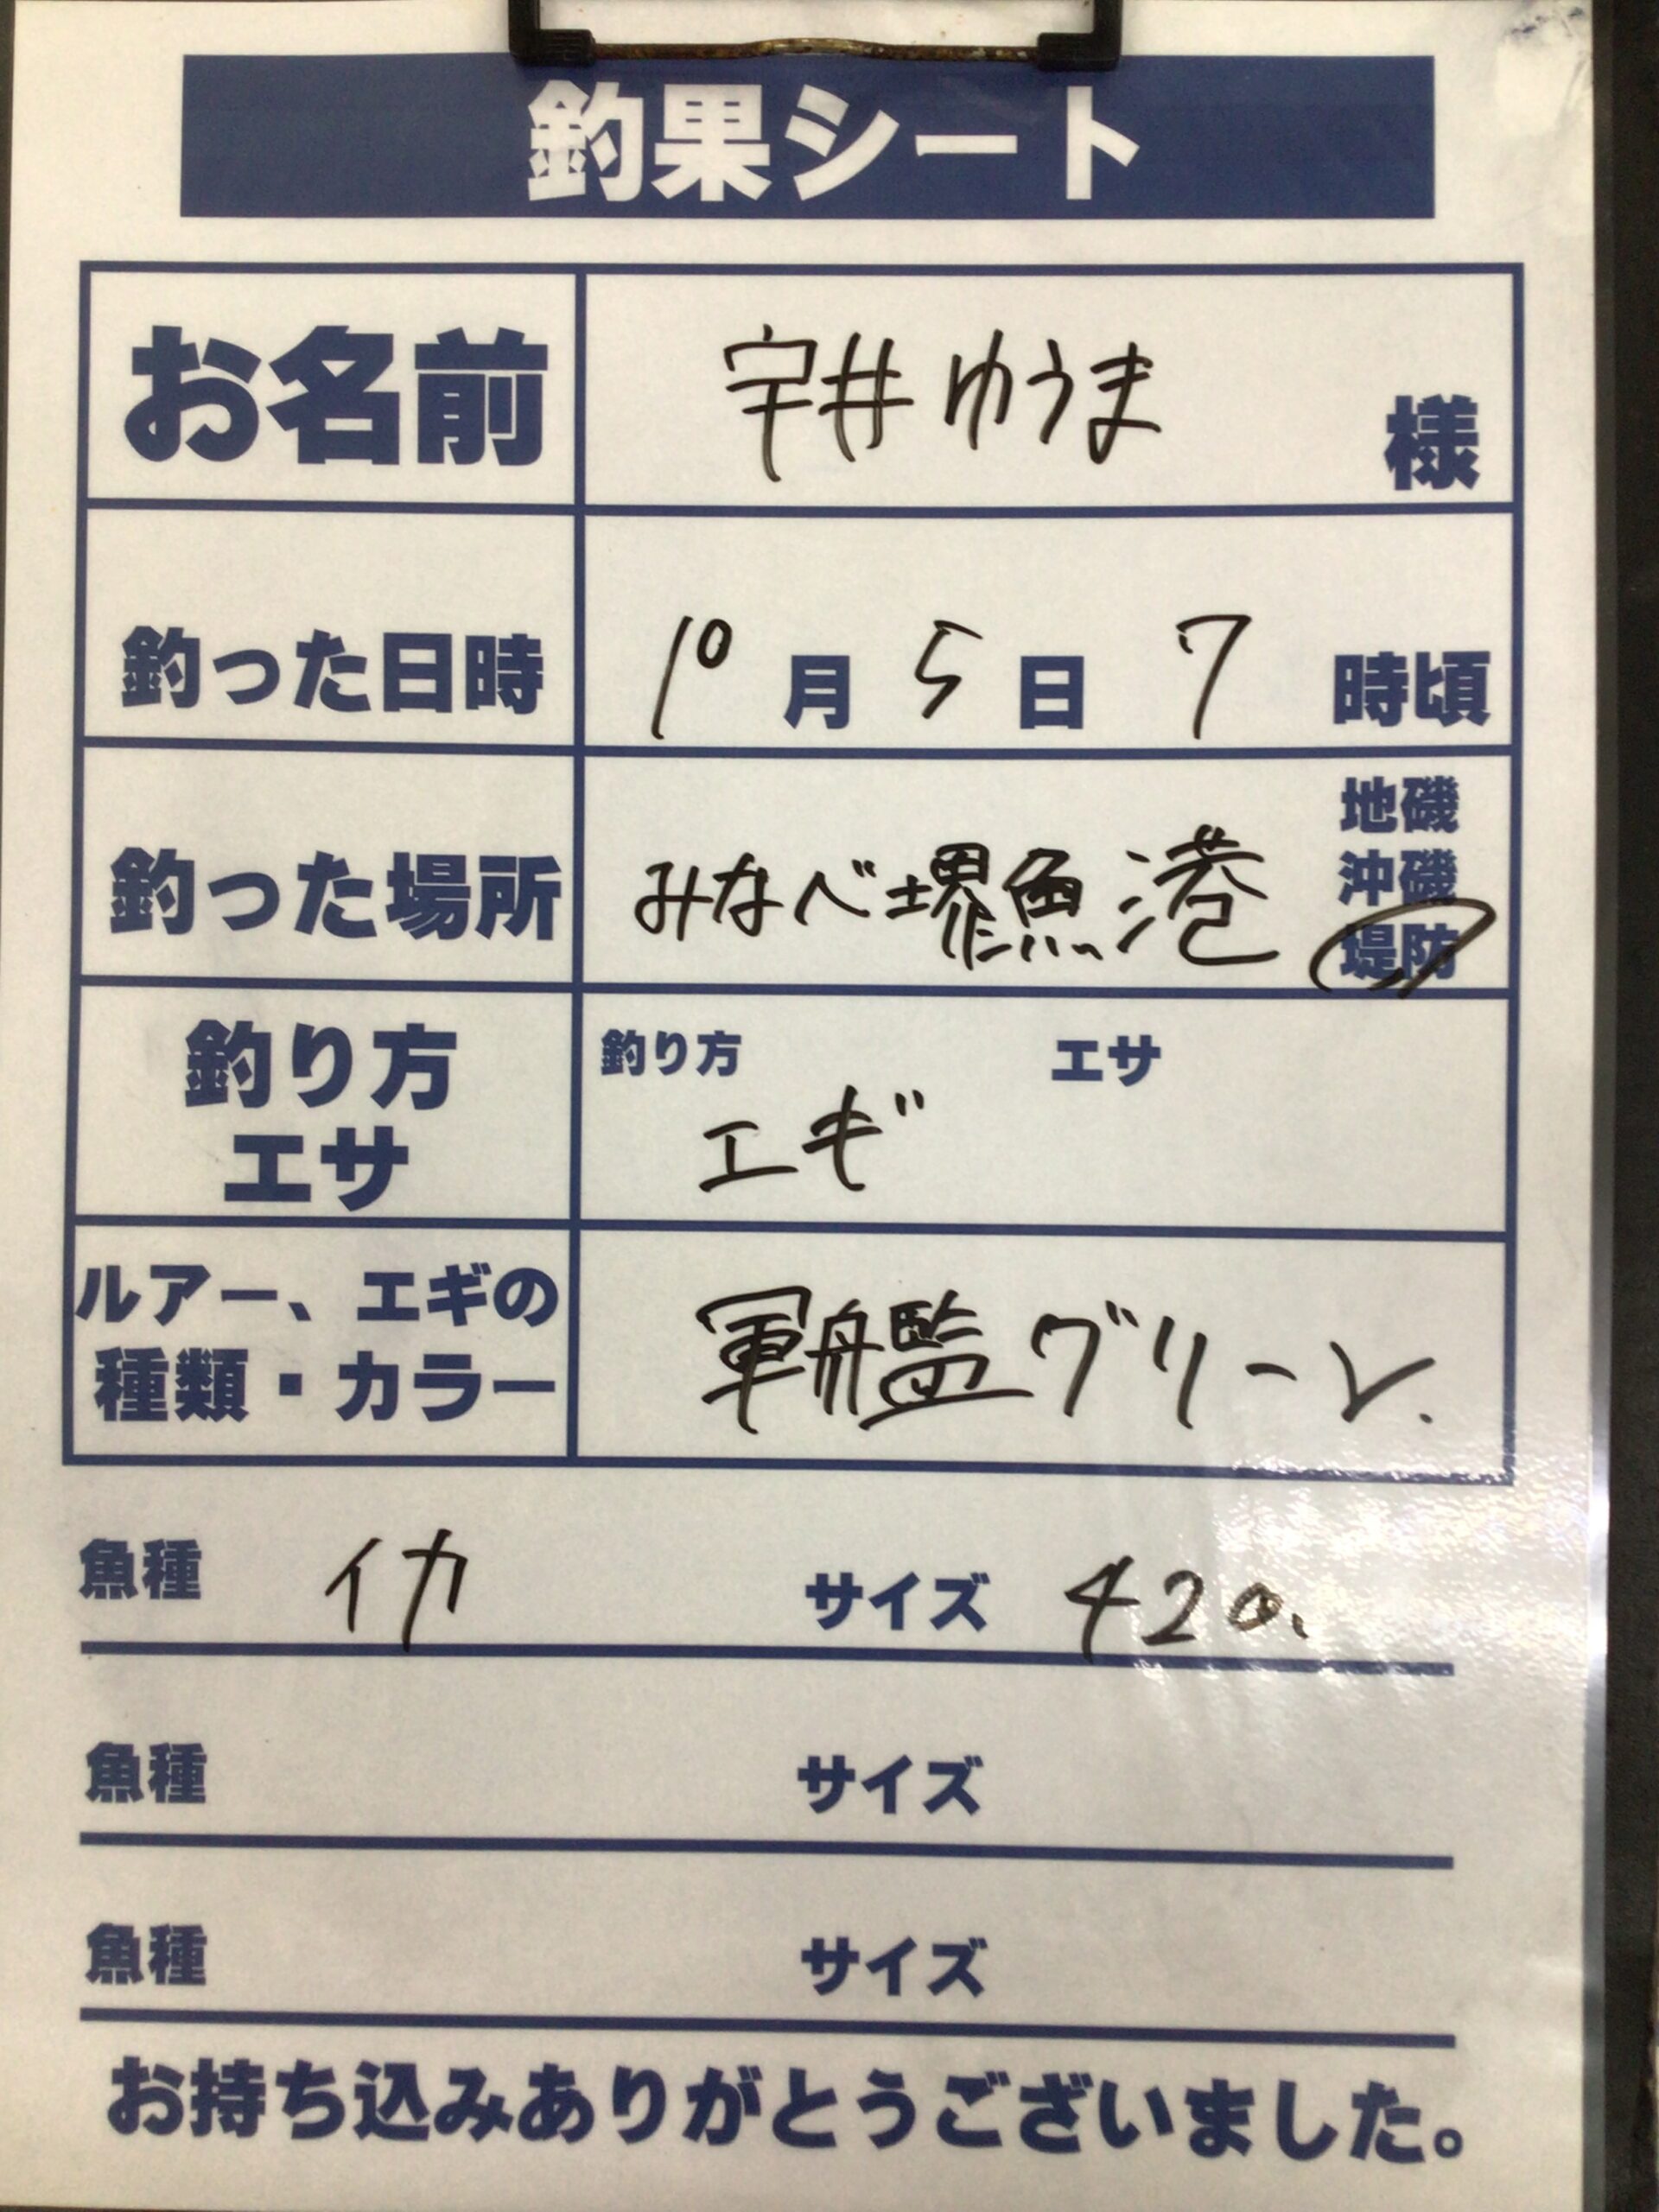 釣果シート
お名前 宇井ゆうま 様
釣った日時 10月5日7時頃
地磯
沖磯
釣った場所 みなべ堺魚港
堤防
釣り方 エサ
釣り方
エサ
エギ
ルアー、エギの
種類・カラー
軍艦グリーン.
魚種 イカ サイズ 420.
魚種 サイズ
魚種 サイズ
お持ち込みありがとうございました。